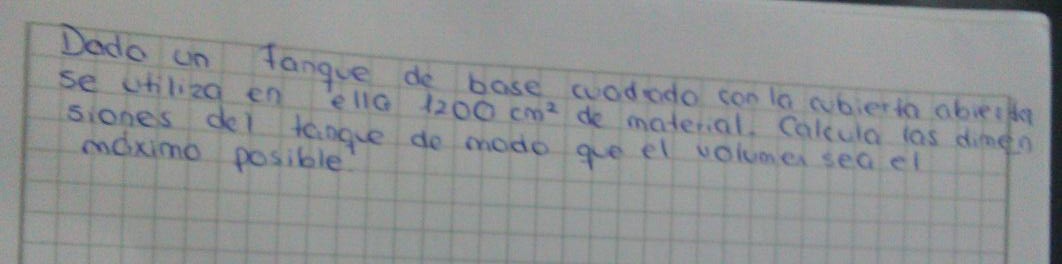 Dado un Tanque de base cuadrado con la cubierta abierta
se utiliza en ella 1200 cm² de material. Calcula las dimen
siones del tanque de modo que el volumen sea el
máximo posible.